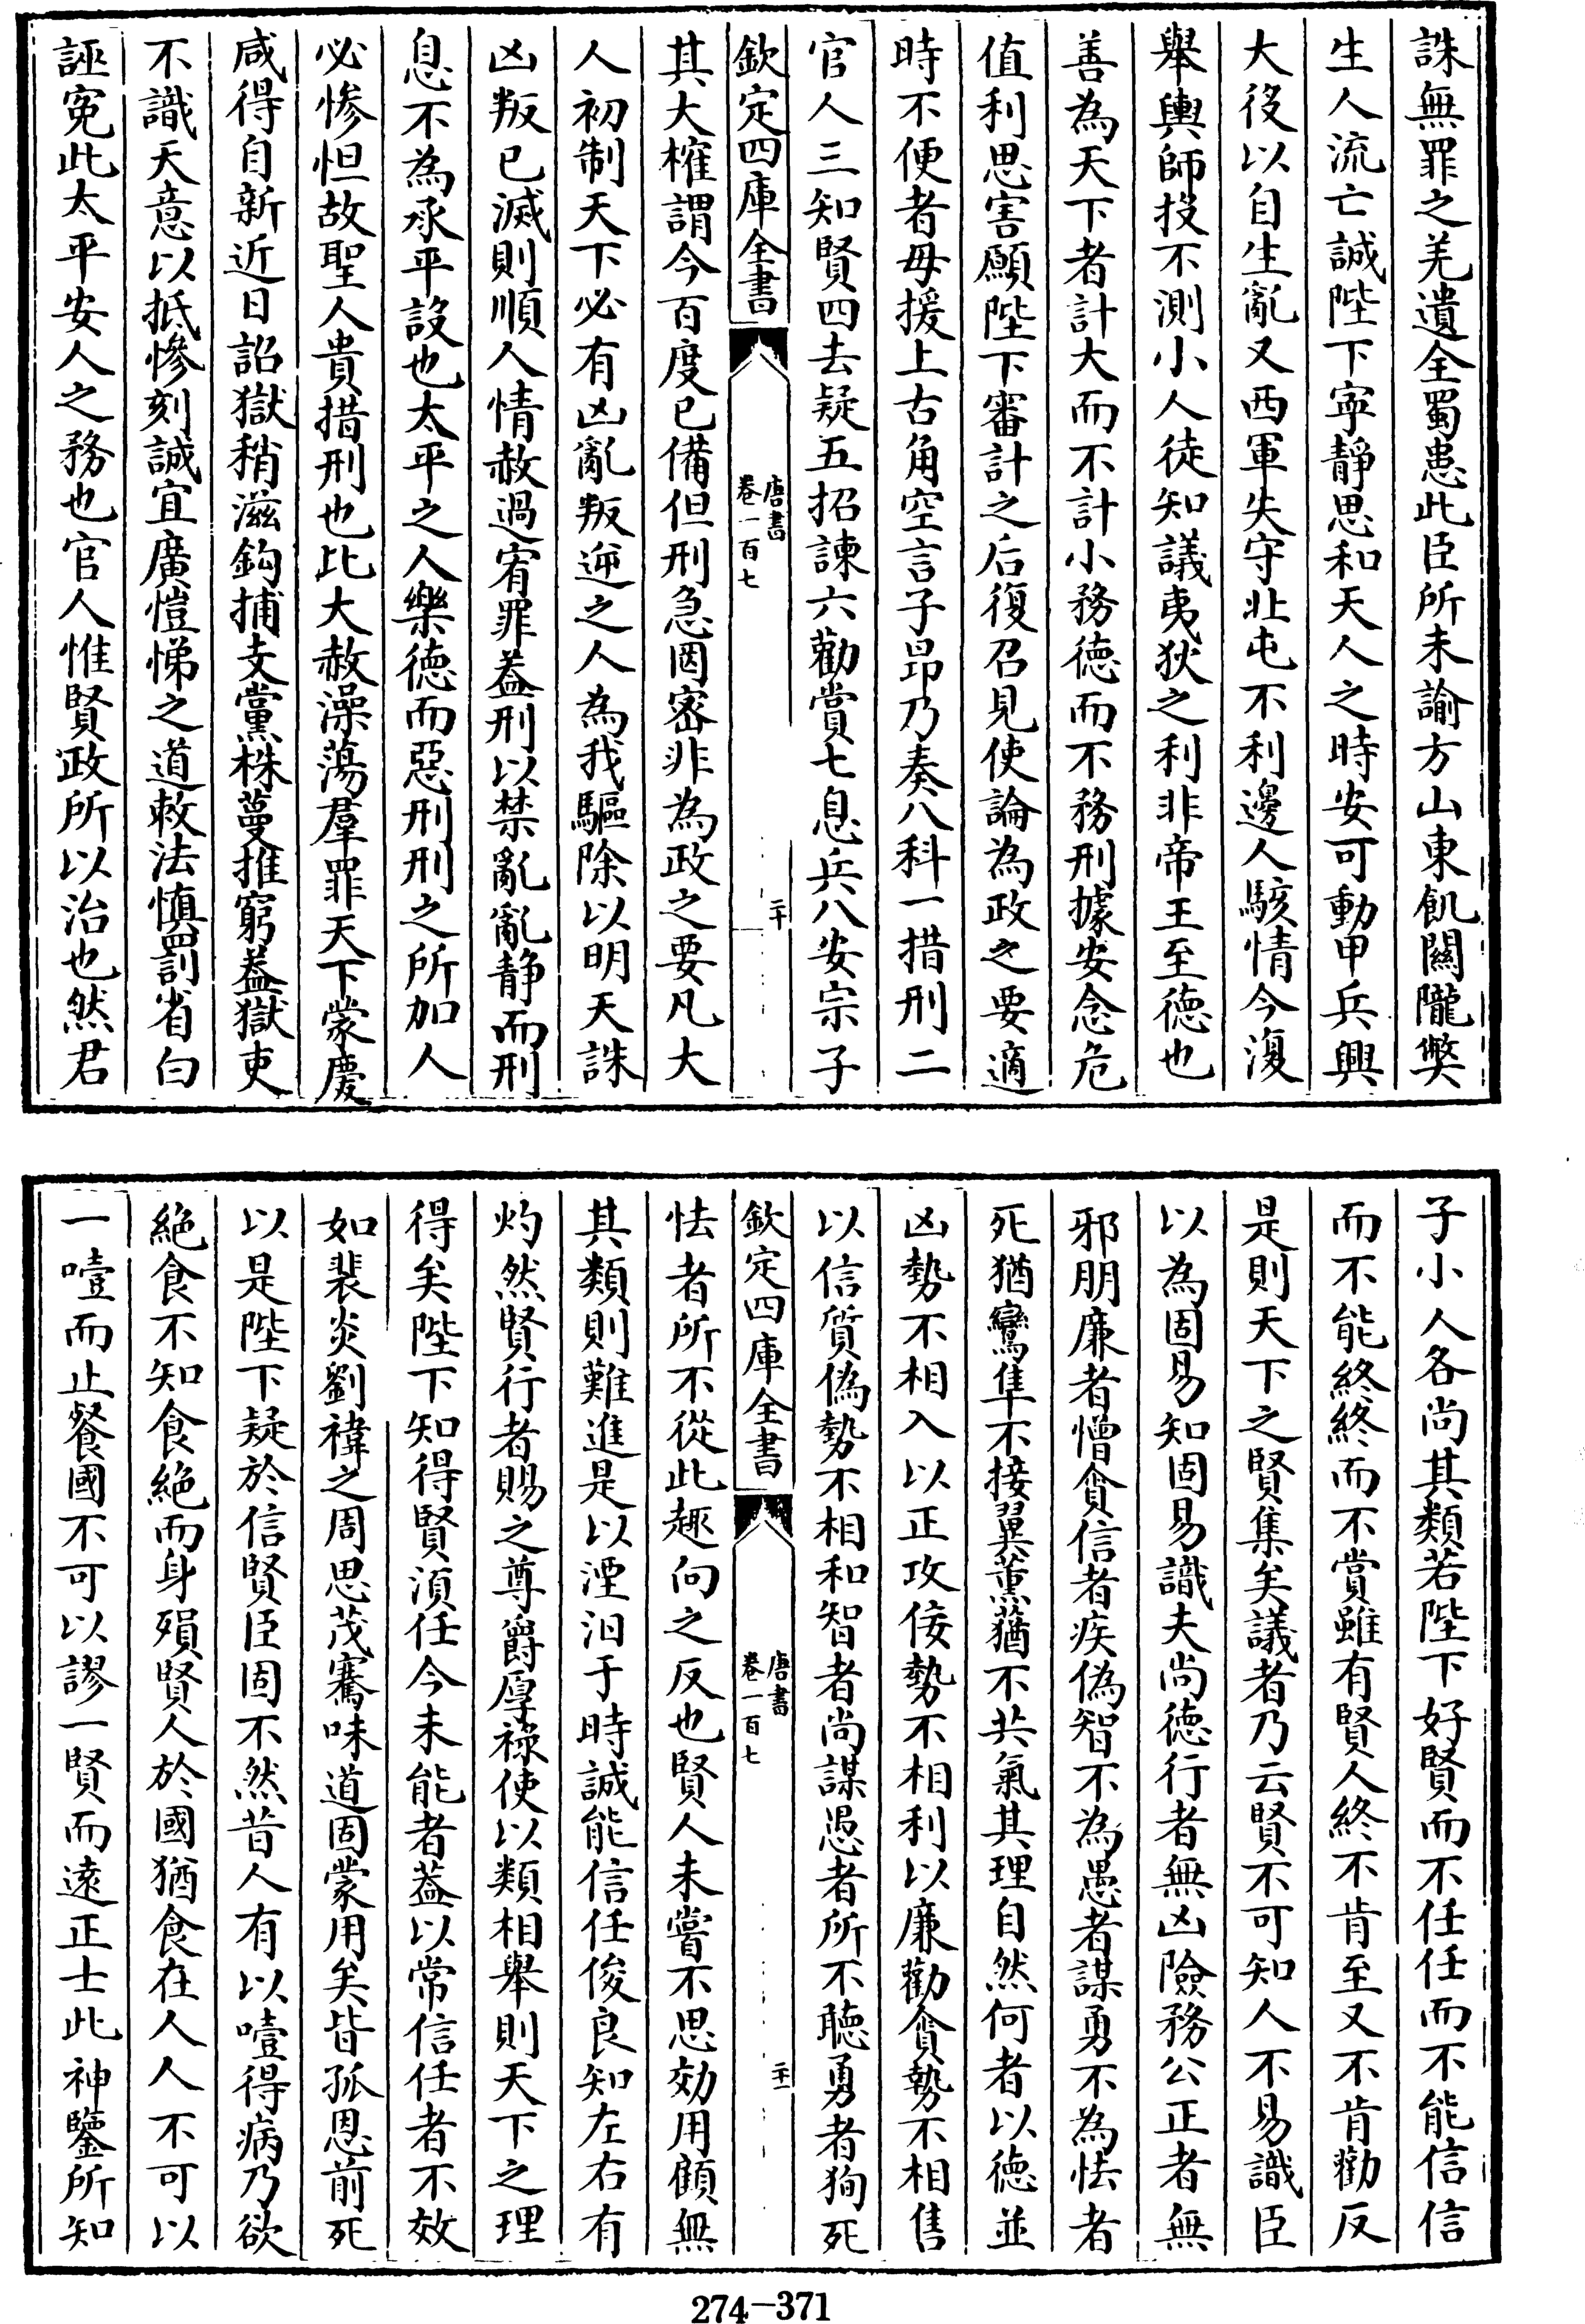 誅無罪之羌遺全蜀患此臣所未諭方山東飢關隴弊
生人流亡誠陛下寧靜思和天人之時安可動甲兵興
大役以自生亂又西軍失守北屯不利邊人駭情今復
舉輿師投不測小人徒知議夷狄之利非帝王至德也
善為天下者計大而不計小務德而不務刑據安念危
值利思害願陛下審計之后復召見使論為政之要適
時不便者毋援上古角空言子昂乃奏八科一措刑二
官人三知賢四去疑五招諫六勸賞七息兵八安宗子
欽定四庫全書
唐書
卷一百七
二十
其大榷謂今百度已備但刑急罔密非為政之要凡大
人初制天下必有凶亂叛逆之人為我驅除以明天誅
凶叛已滅則順人情赦過宥罪葢刑以禁亂亂静而刑
息不為承平設也太平之人樂德而惡刑刑之所加人
必慘怛故聖人貴措刑也比大赦澡蕩羣罪天下蒙慶
咸得自新近日詔獄稍滋鈎捕支黨株蔓推窮葢獄吏
不識天意以抵慘刻誠宜廣愷悌之道敕法慎罰省白
誣寃此太平安人之務也官人惟賢政所以治也然君
子小人各尚其類若陛下好賢而不任任而不能信信
而不能終終而不賞雖有賢人終不肯至又不肯勸反
是則天下之賢集矣議者乃云賢不可知人不易識臣
以為固易知固易識夫尚德行者無凶險務公正者無
邪朋廉者憎貪信者疾偽智不為愚者謀勇不為怯者
死猶鸞隼不接翼薰蕕不共氣其理自然何者以德並
凶勢不相入以正攻佞勢不相利以廉勸貪勢不相售
以信質偽勢不相和智者尚謀愚者所不聽勇者狥死
欽定四庫全書
唐書
卷一百七
二十一
怯者所不從此趣向之反也賢人未嘗不思効用顧無
其類則難進是以湮汨于時誠能信任俊良知左右有
灼然賢行者賜之尊爵厚祿使以類相舉則天下之理
得矣陛下知得賢須任今未能者葢以常信任者不效
如裴炎劉禕之周思茂騫味道固蒙用矣皆孤恩前死
以是陛下疑於信賢臣固不然昔人有以噎得病乃欲
絶食不知食絶而身殞賢人於國猶食在人人不可以
一噎而止餐國不可以謬一賢而遠正士此神鑒所知
274-371